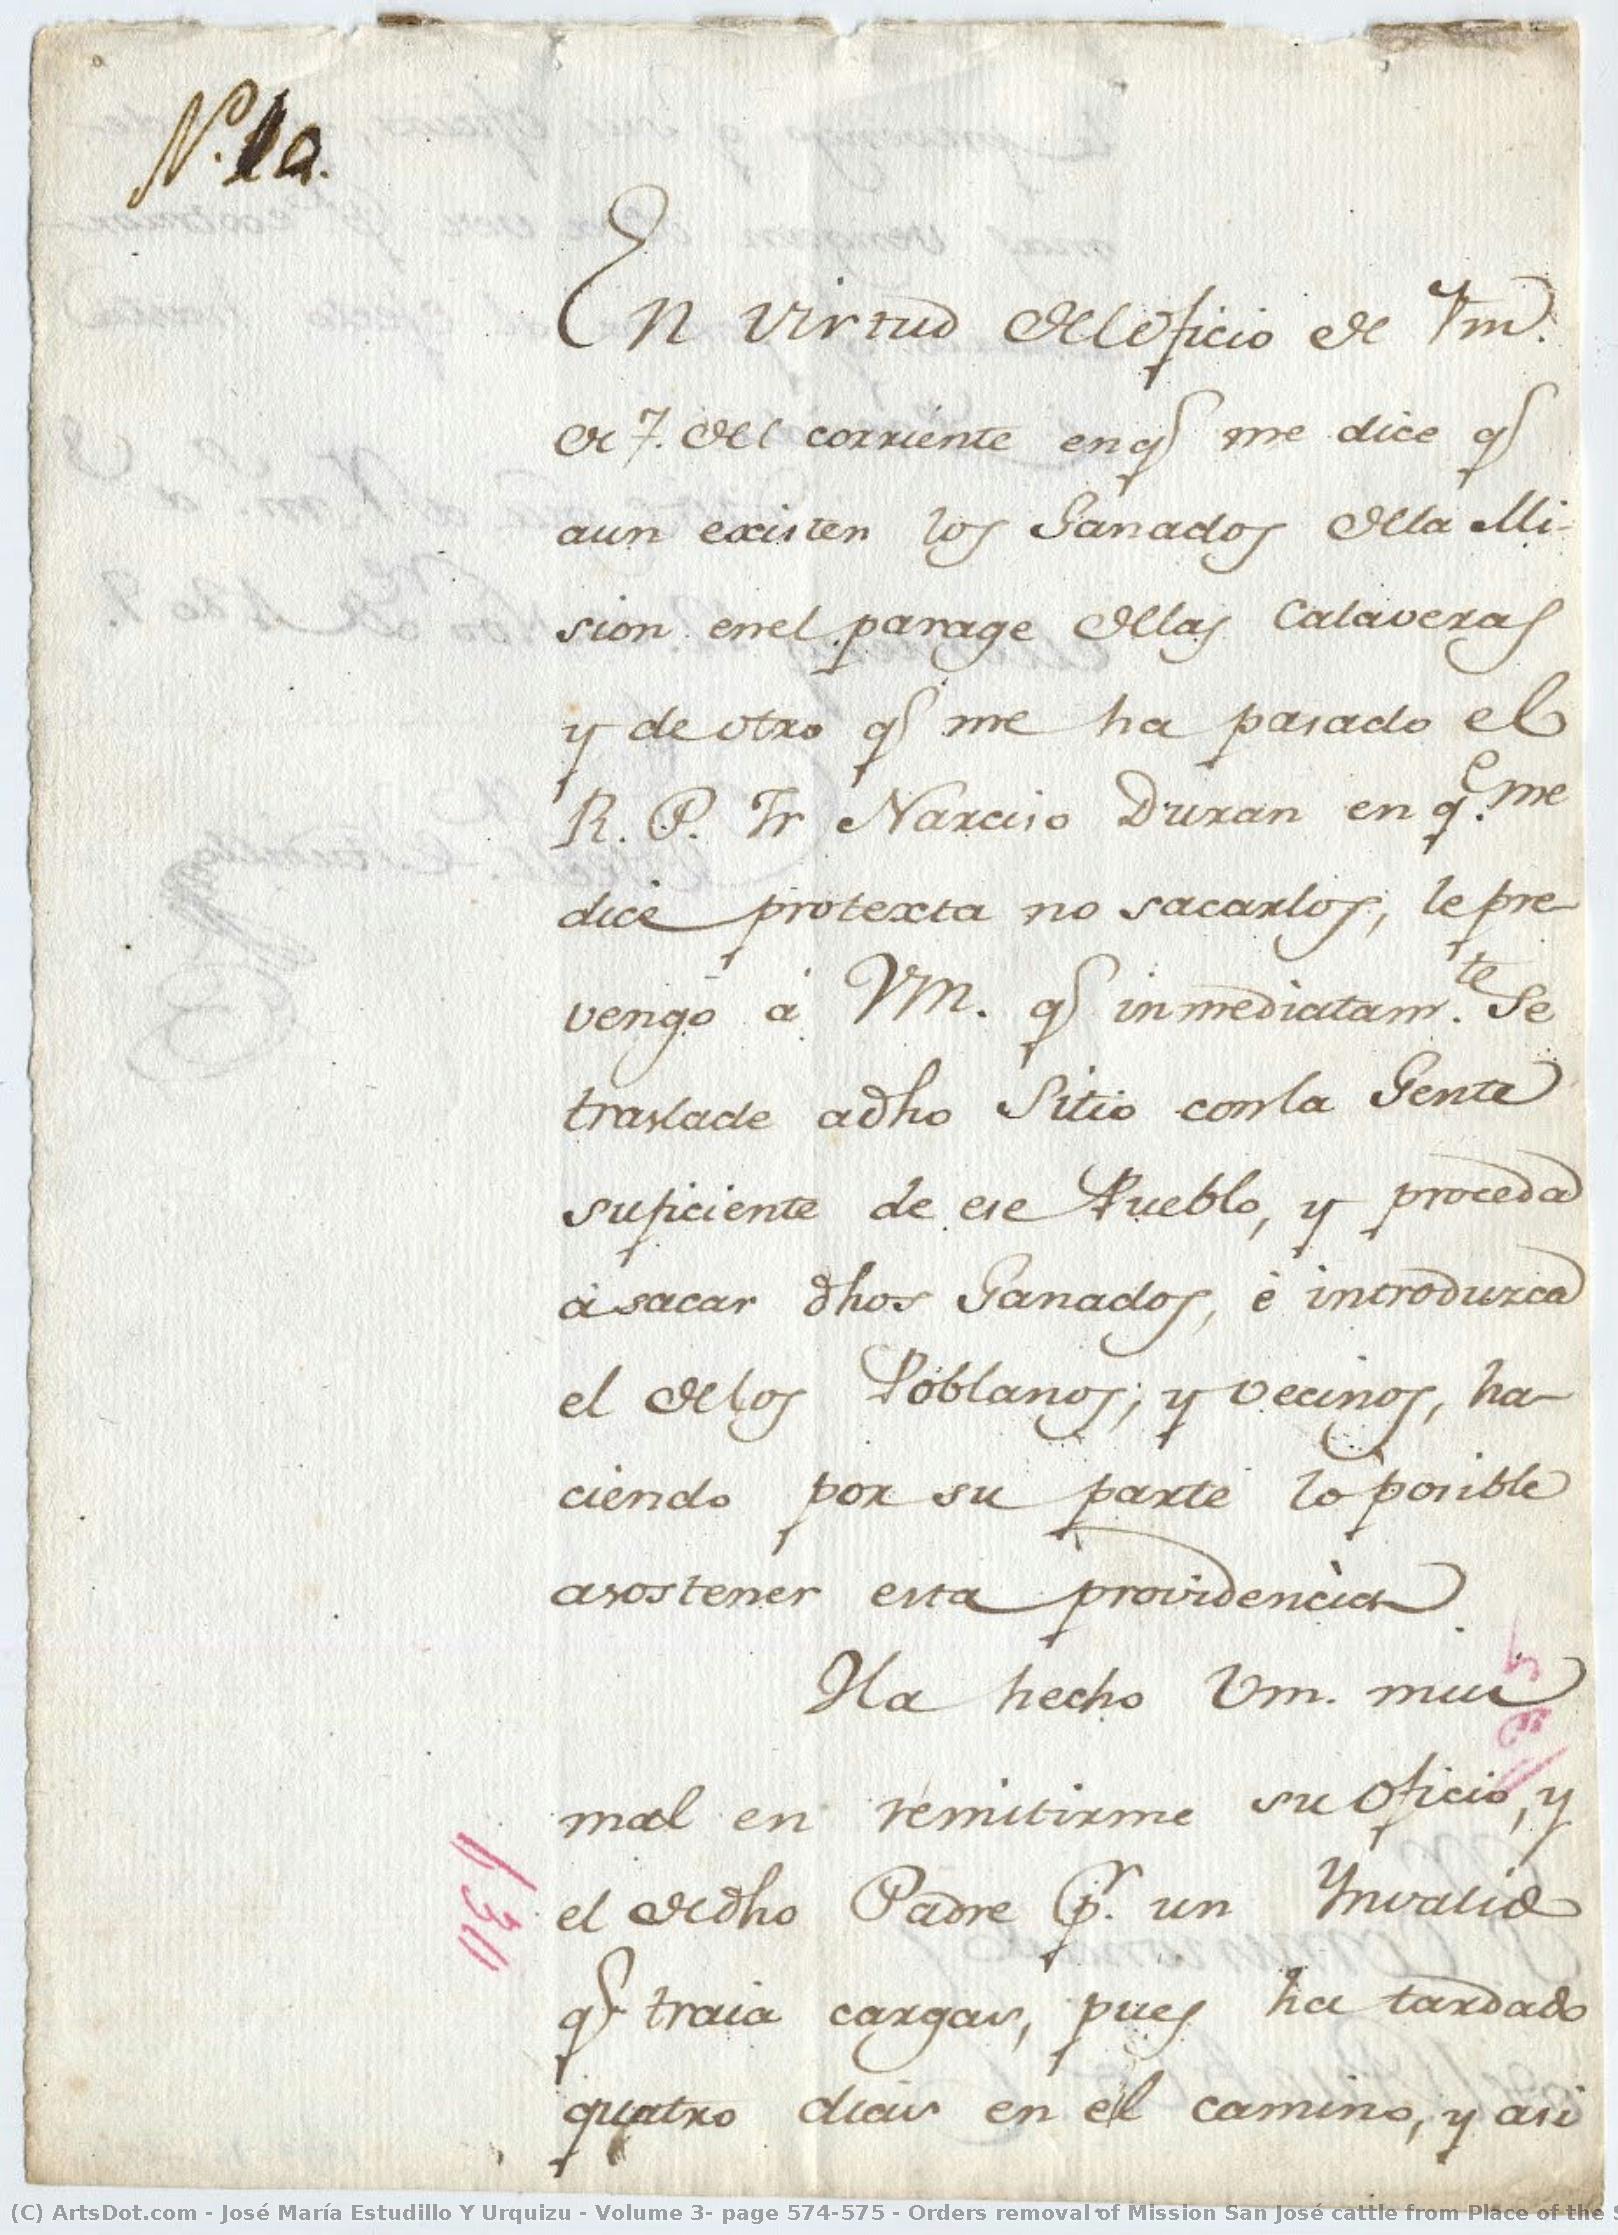 N.
En virtud del oficio de Vm.
de 7. del corriente en q me dice q
aun existen los Ganados dela Mi-
sion enel parage delas Calaveras
y de otro q me ha pasado el
R. P. Fr Narciso Duran en q.e me
dice protexta no sacarlos, le pre-
vengo á Vm. q inmediatam.te Se
traslade adho Sitio conla Gente
suficiente de ese Pueblo, y proceda
á sacar dhos Ganados, é introduzca
el delos Poblanos; y vecinos, ha-
ciendo por su parte lo posible
asostener esta providencia.
Ha hecho Vm. mui
mal en remitirme su Oficio, y
el dedho Padre p.r un Ynvalido
q traia cargas, pues ha tardado
quatro dias en el camino, y asi
(C) ArtsDot.com - José María Estudillo Y Urquizu - Volume 3- page 574-575 - Orders removal of Mission San José cattle from Place of the S